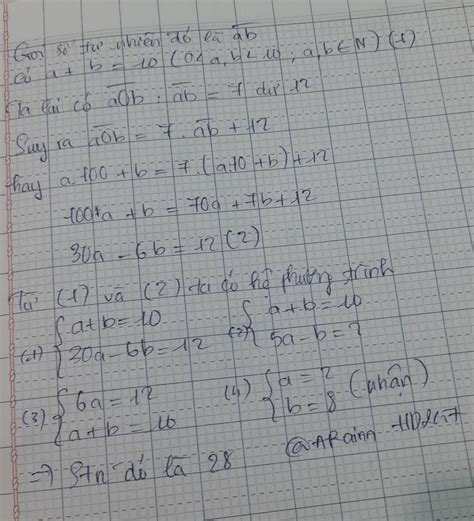 Gọi số tự nhiên đó là ab
có a + b = 10 (0<a,b<10; a,b∈N) (1)
Ta lại có a0b : ab = 7 dư 12
Suy ra a0b = 7. ab + 12
hay a.100 + b = 7.(a.10+b)+12
100a + b = 70a + 7b+12
30a - 6b = 12 (2)
Từ (1) và (2) ta có hệ phương trình
(1) { a+b=10 (2) { a+b=10
30a-6b=12 5a-b=2
(3) { 6a=12 (4) { a=2 (nhận)
a+b=10 b=8
=> Stn đó là 28